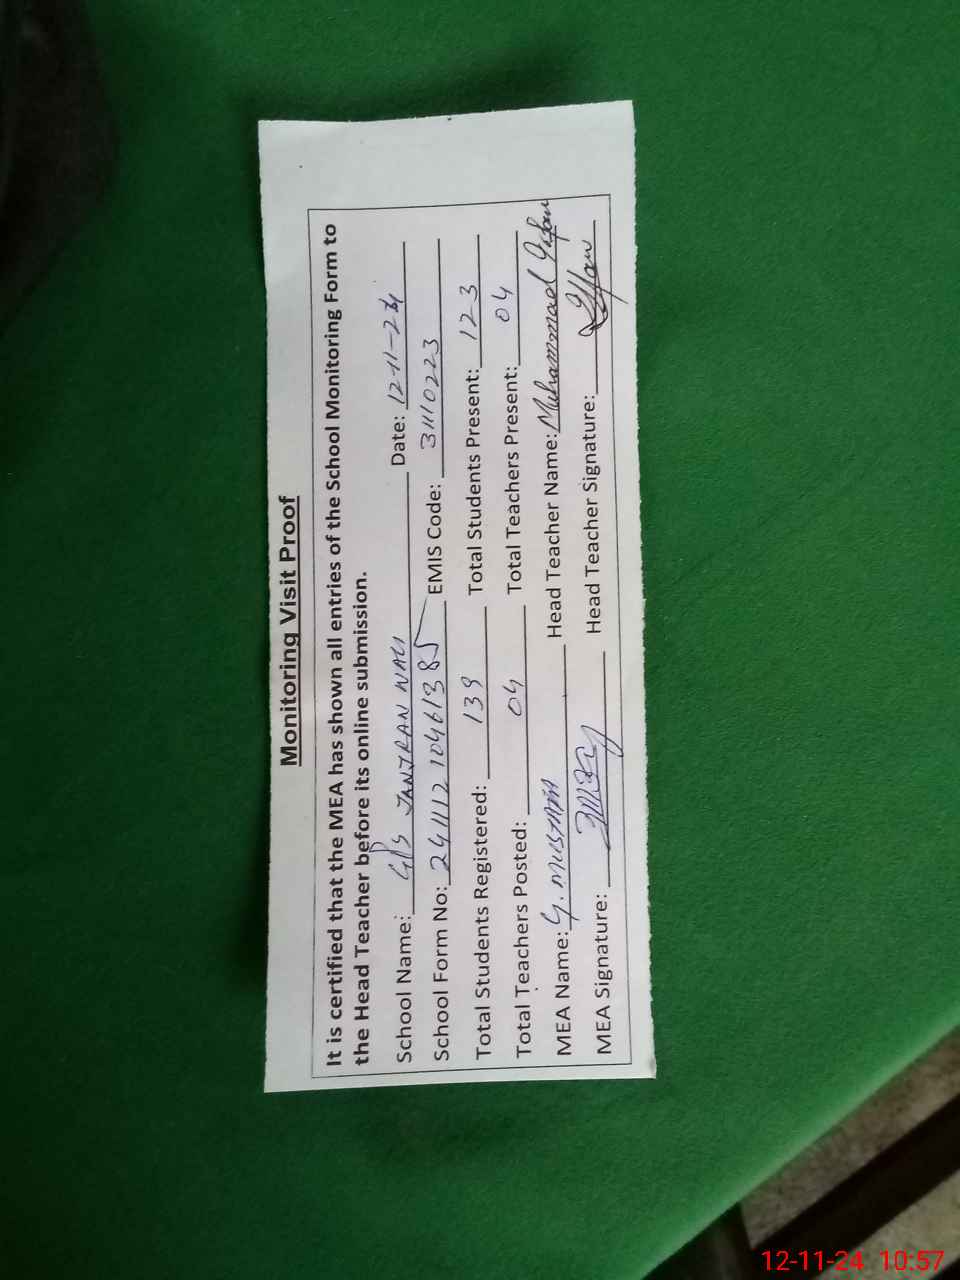 Monitoring Visit Proof
It is certified that the MEA has shown all entries of the School Monitoring Form to
the Head Teacher before its online submission.
School Name: GPS JANJRAN WALI Date: 12-11-24
School Form No: 24111210461385 EMIS Code: 31110223
Total Students Registered: 139 Total Students Present: 123
Total Teachers Posted: 04 Total Teachers Present: 04
MEA Name: G. MUSTAFA Head Teacher Name: Muhammad Irfan
MEA Signature: Head Teacher Signature: Irfan
12-11-24 10:57